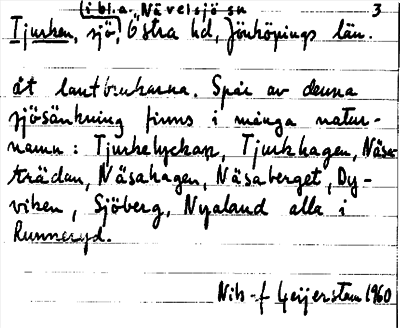 (i bl.a. Nävelsjö sn 3
Tjurken, sjö, Östra hd, Jönköpings län.
åt lantbrukarna. Spår av denna
sjösänkning finns i många natur-
namn: Tjurkelyckan, Tjurkhagen, Näsa-
trädan, Näsahagen, Näsaberget, Dy-
viken, Sjöberg, Nyaland alla i
Runneryd.
Nils f Geijerstam 1960